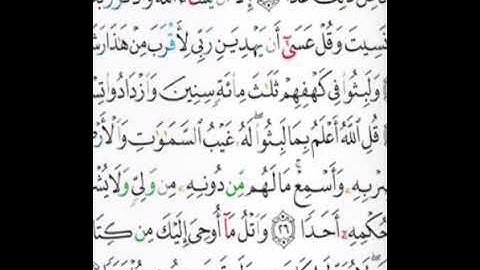 نَسِيتَ وَقُلْ عَسَىٰٓ أَن يَهْدِيَنِ رَبِّى لِأَقْرَبَ مِنْ هَٰذَا رَشَ
وَلَبِثُوا۟ فِى كَهْفِهِمْ ثَلَٰثَ مِا۟ئَةٍ سِنِينَ وَٱزْدَادُوا۟ تِسْ
قُلِ ٱللَّهُ أَعْلَمُ بِمَا لَبِثُوا۟ۖ لَهُۥ غَيْبُ ٱلسَّمَٰوَٰتِ وَٱلْأَرْ
صِرْ بِهِۦ وَأَسْمِعْۚ مَا لَهُم مِّن دُونِهِۦ مِن وَلِىٍّ وَلَا يُشْ
حُكْمِهِۦٓ أَحَدًا ٢٦ وَٱتْلُ مَآ أُوحِىَ إِلَيْكَ مِن كِتَا